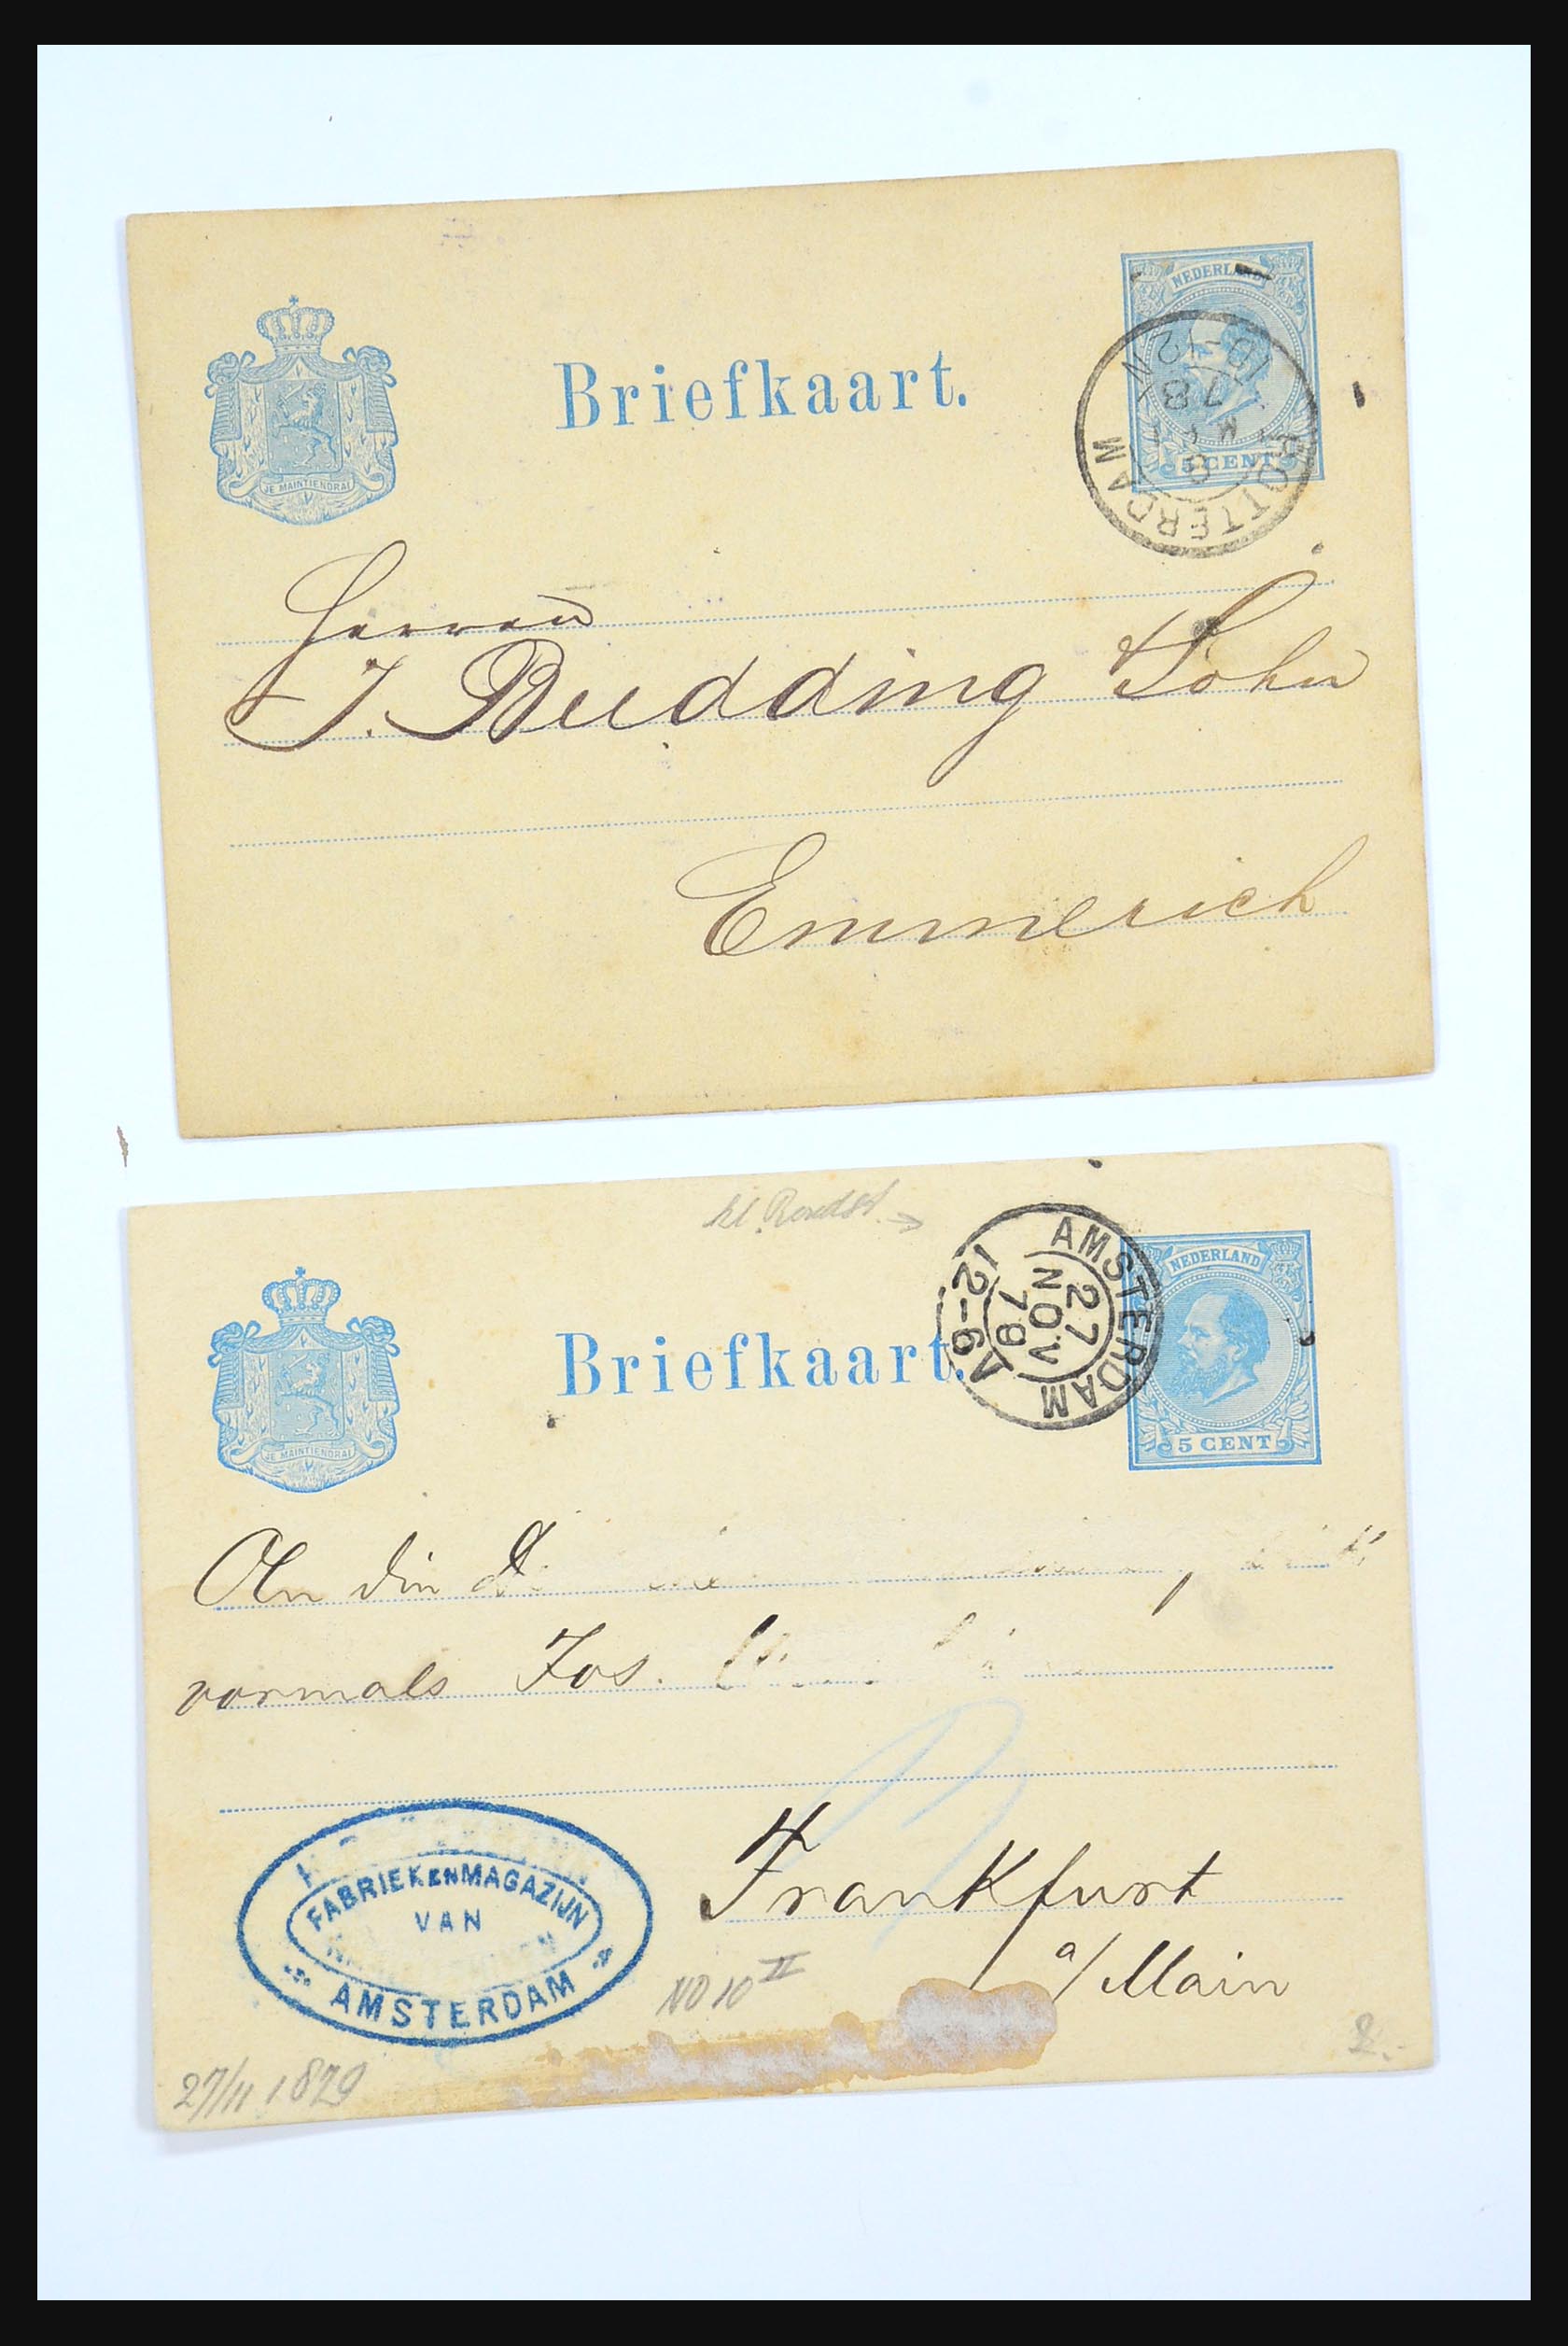 NEDERLAND
Briefkaart.
JE MAINTIENDRAI
5 CENT
ROTTERDAM
8
78
10-12 N
Herren
J. Budding Sohn
Emmerich
kl. Rondst. →
NEDERLAND
Briefkaart.
JE MAINTIENDRAI
5 CENT
AMSTERDAM
27
NOV
78
12-6 A
An die
vormals Jos.
FABRIEK EN MAGAZIJN
VAN
AMSTERDAM
Frankfurt
a/Main
NO 10 II
27/11 1879
2.-